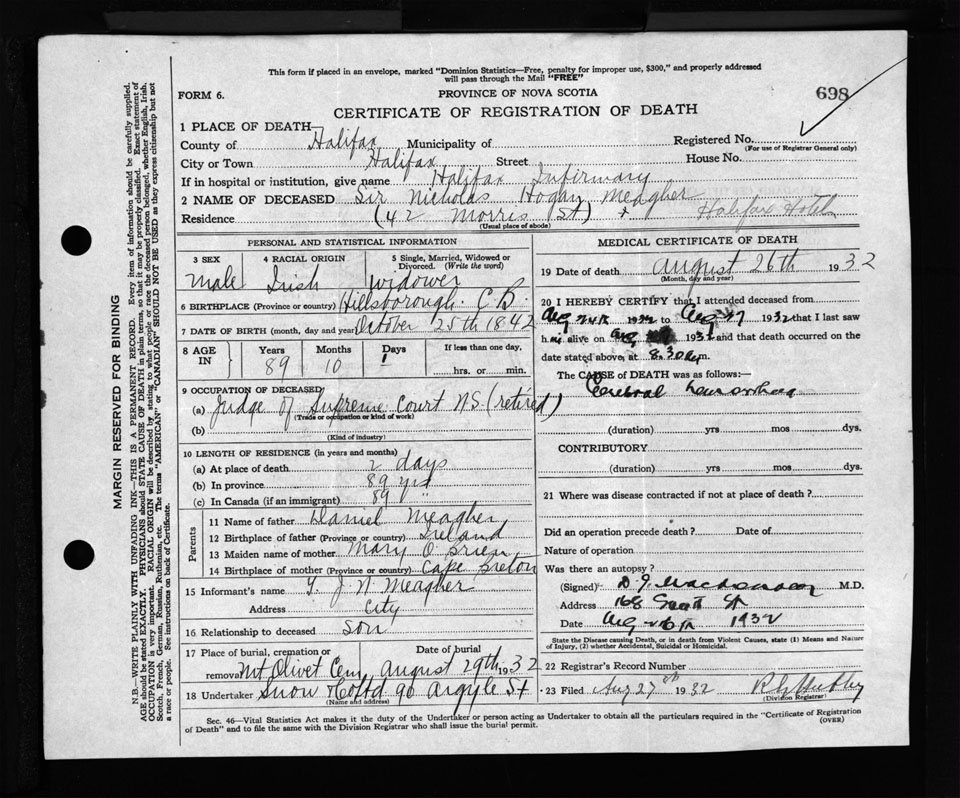 This form if placed in an envelope, marked "Dominion Statistics—Free, penalty for improper use, $300," and properly addressed
will pass through the Mail "FREE"
FORM 6.
PROVINCE OF NOVA SCOTIA
698
CERTIFICATE OF REGISTRATION OF DEATH
1 PLACE OF DEATH—
County of Halifax Municipality of Registered No.
(For use of Registrar General only)
City or Town Halifax Street House No.
If in hospital or institution, give name Halifax Infirmary
2 NAME OF DECEASED Sir Nicholas Hogan Meagher
Residence (42 Morris St) + Halifax Hotel
(Usual place of abode)
PERSONAL AND STATISTICAL INFORMATION
3 SEX 4 RACIAL ORIGIN 5 Single, Married, Widowed or
Divorced. (Write the word)
Male Irish Widower
6 BIRTHPLACE (Province or country) Hillsborough C B.
7 DATE OF BIRTH (month, day and year) October 25th 1842
8 AGE IN Years Months Days If less than one day,
89 10 1 hrs. or min.
9 OCCUPATION OF DECEASED
(a) Judge of Supreme Court N S (retired)
(Trade or occupation or kind of work)
(b)
(Kind of industry)
10 LENGTH OF RESIDENCE (in years and months)
(a) At place of death 2 days
(b) In province 89 yrs
(c) In Canada (if an immigrant) 89 "
Parents
11 Name of father Daniel Meagher
12 Birthplace of father (Province or country) Ireland
13 Maiden name of mother Mary O'Brien
14 Birthplace of mother (Province or country) Cape Breton
15 Informant's name J. N. Meagher
Address City
16 Relationship to deceased son
17 Place of burial, cremation or Date of burial
removal Mt Olivet Cem August 29th 1932
18 Undertaker Snow & Co Ltd 90 Argyle St
(Name and address)
MEDICAL CERTIFICATE OF DEATH
19 Date of death August 26th 1932
(Month, day and year)
20 I HEREBY CERTIFY that I attended deceased from
Aug 24th 1932 to Aug 1932 that I last saw
him alive on Aug 1932 and that death occurred on the
date stated above, at 8.30 m.
The CAUSE of DEATH was as follows:—
Cerebral hemorrhage
(duration) yrs mos dys.
CONTRIBUTORY
(duration) yrs mos dys.
21 Where was disease contracted if not at place of death?
Did an operation precede death? Date of
Nature of operation
Was there an autopsy?
(Signed) M.D.
Address 168 St
Date Aug 26th 1932
State the Disease causing Death, or in death from Violent Causes, state (1) Means and Nature
of Injury, (2) whether Accidental, Suicidal or Homicidal.
22 Registrar's Record Number
23 Filed Aug 27th 1932
(Division Registrar)
Sec. 46—Vital Statistics Act makes it the duty of the Undertaker or person acting as Undertaker to obtain all the particulars required in the "Certificate of Registration
of Death" and to file the same with the Division Registrar who shall issue the burial permit.
(OVER)
MARGIN RESERVED FOR BINDING
N.B.—WRITE PLAINLY WITH UNFADING INK—THIS IS A PERMANENT RECORD. Every item of information should be carefully supplied.
AGE should be stated EXACTLY. PHYSICIANS should STATE CAUSE OF DEATH in plain terms, so that it may be properly classified. Exact statement of
OCCUPATION is very important. RACIAL ORIGIN will be described by stating to what people or race the deceased person belonged, whether English, Irish,
Scotch, French, German, Russian, Ruthenian, etc. The terms "AMERICAN" or "CANADIAN" SHOULD NOT BE USED as they express citizenship but not
a race or people. See instructions on back of Certificate.